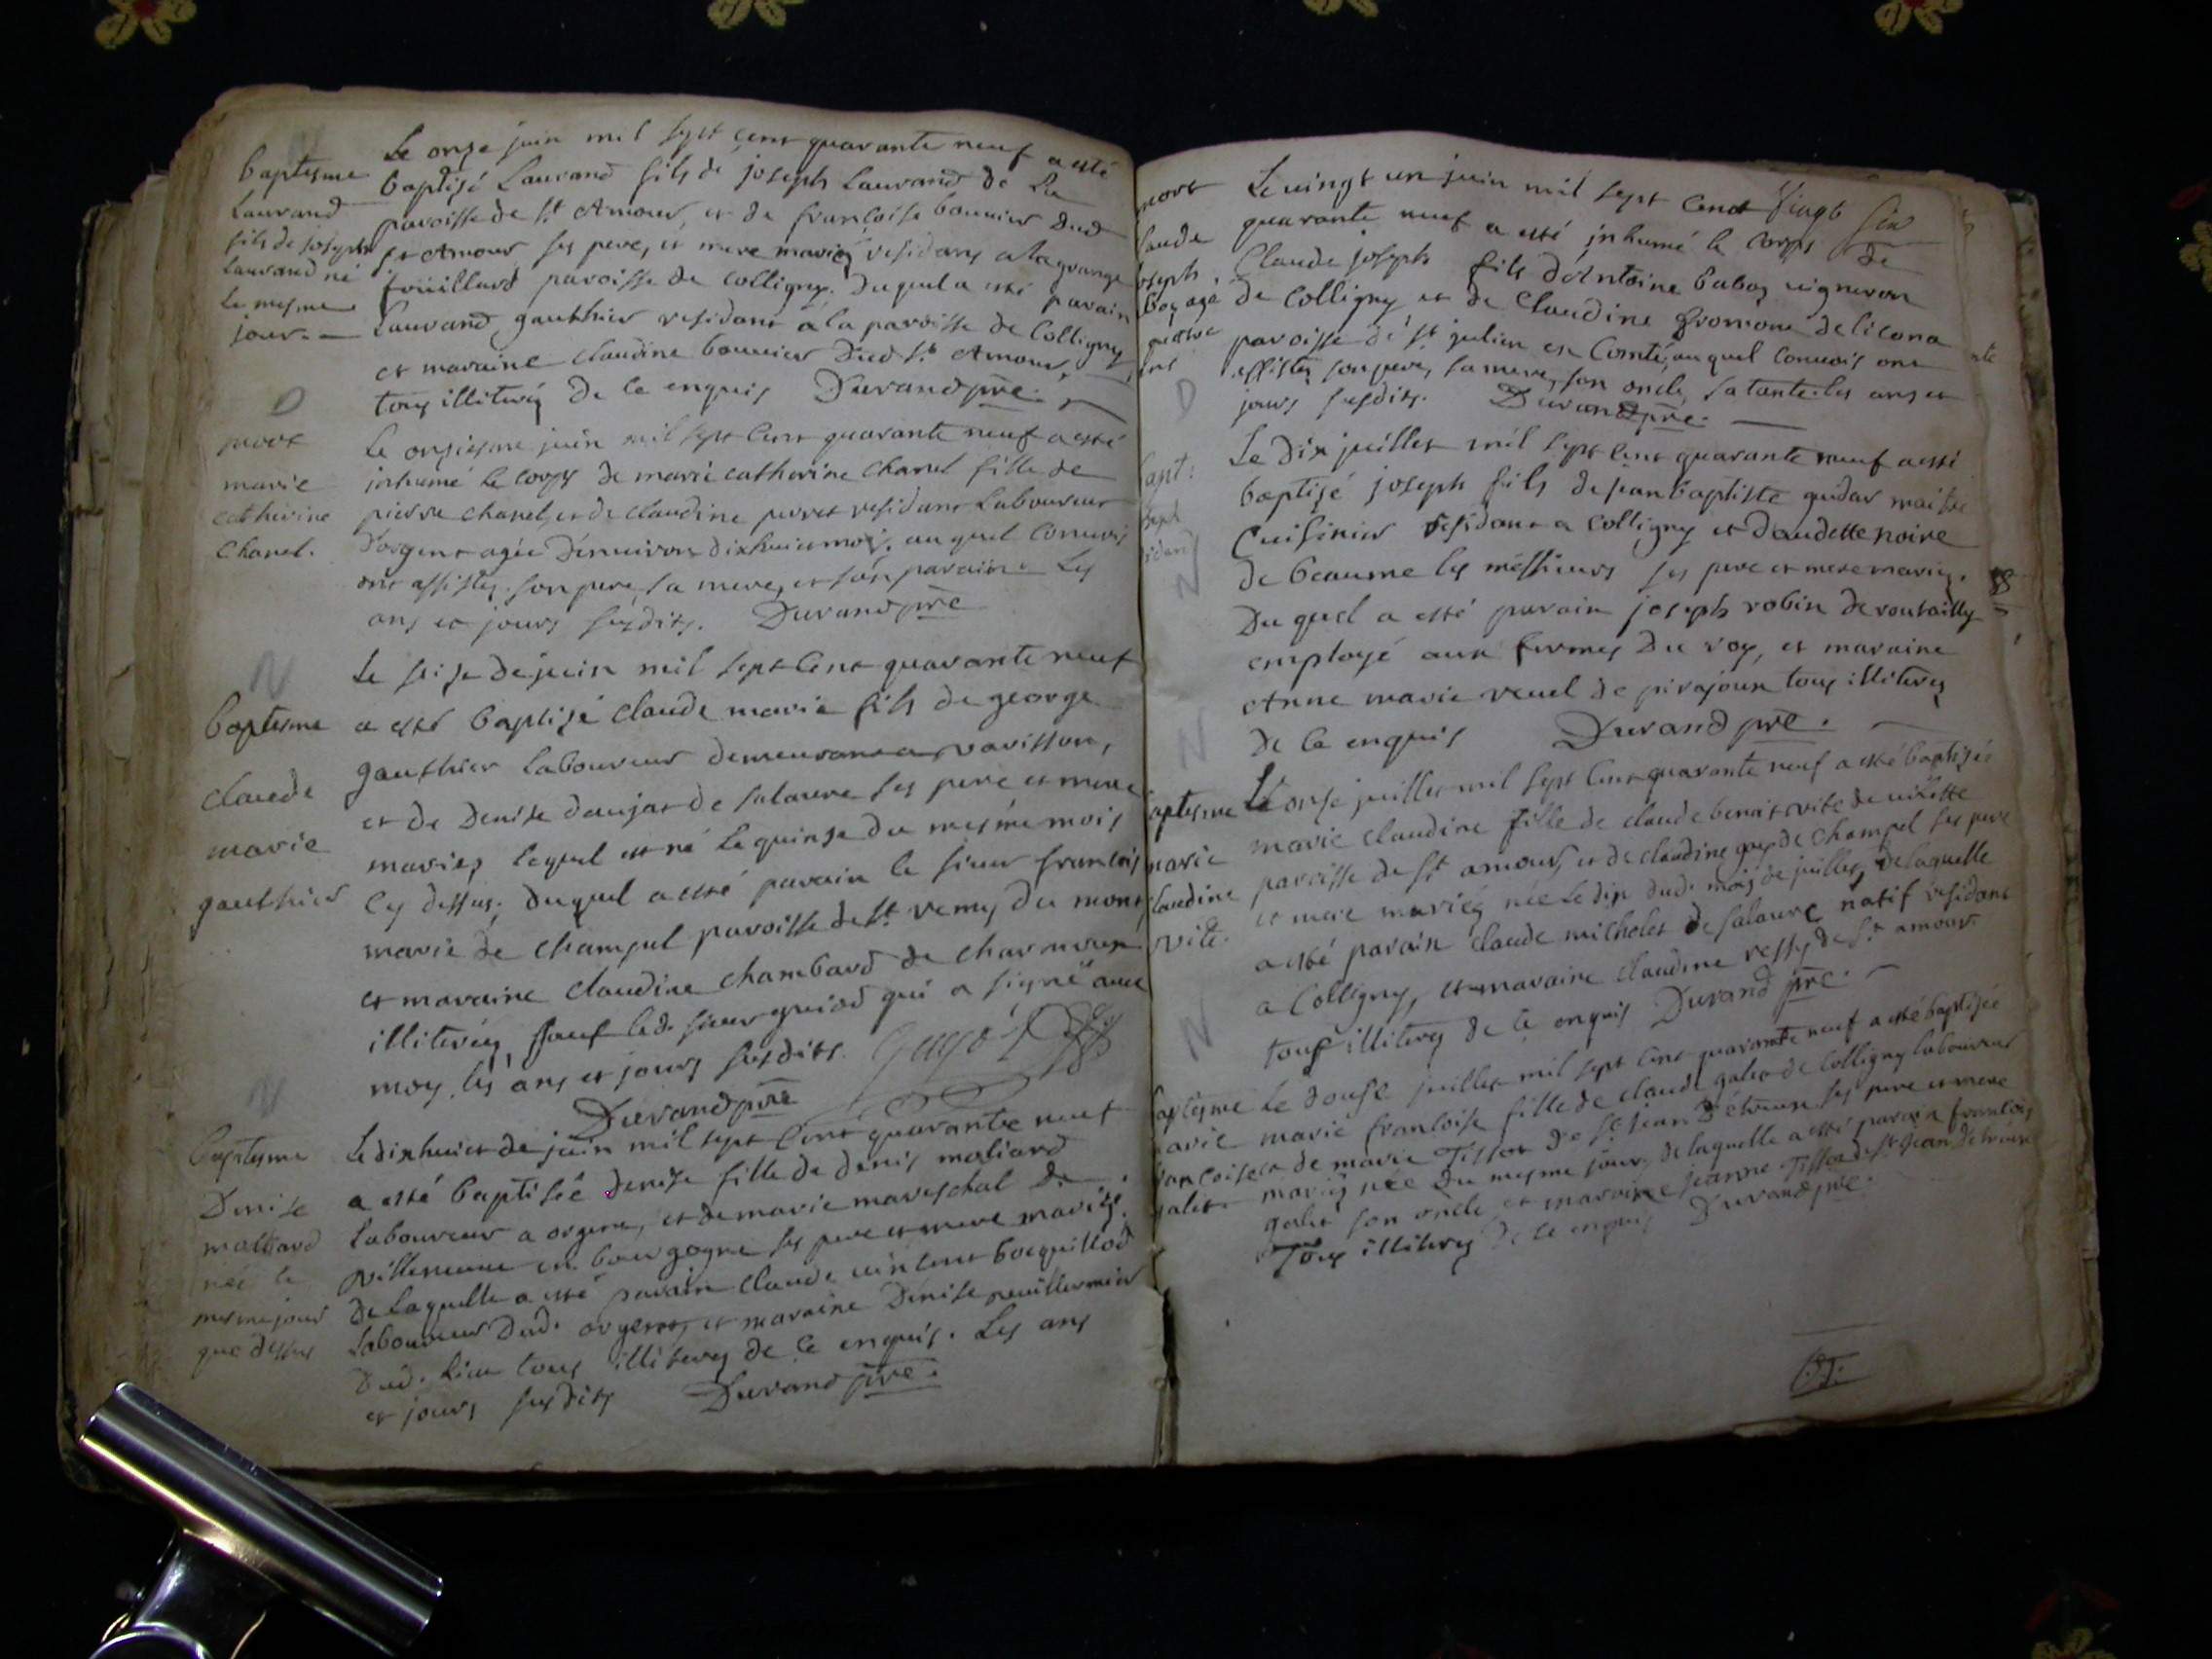 Le onze juin mil sept cent quarante neuf a esté
baptesme
baptizé Laurand fils de joseph Laurand de La
Laurand
paroisse de st Amour, et de francoise bouuier dud
fils de joseph
st Amour ses pere, et mere mariez residans a la grange
Laurand né
paroisse de colligny. Duquel a esté parain
le mesme
Laurand gauthier residant a la paroisse de Colligny
jour. —
et maraine claudine bouuier dud st Amour,
tous illiterez de ce enquis Durand pre.
D
mort
Le onziesme juin mil sept cent quarante neuf a esté
marie
inhumé le corps de marie catherine Chanel fille de
catherine
pierre chanel, et de claudine perret residant Laboureur
Chanel.
d'orgent agée d'enuiron dixhuit mois, auquel conuois
ont assistez son pere, sa mere, et son parain. Les
ans et jours susdits. Durand pre
N
Le seize de juin mil sept cent quarante neuf
baptesme
a esté baptizé claude marie fils de george
gauthier laboureur demeurant a varisson,
claude
et de Denise daujat de salaure ses pere et mere
marie
mariez lequel est né le quinze du mesme mois
gauthier
cy dessus; duquel a esté parain le sieur francois
marie de champel paroisse de st remy du mont
et maraine claudine chambard de
illiterez, sauf led. sieur guiod qui a signé auec
moy, les ans et jours susdits. guyót
Durand pre
N
baptesme
Le dixhuict de juin mil sept cent quarante neuf
Denise
a esté baptisée denise fille de denis maliard
maliard
laboureur a orgent, et de marie mareschal de
née le
villeneuue en bourgogne ses pere et mere mariez.
mesme jour
de laquelle a esté parain claude vincent bocquillod
que dessus
laboureur dud. orgent, et maraine Denise
dud. lieu tous illiterez de ce enquis. Les ans
et jours susdits Durand pre.
mort
Le vingt un juin mil sept cent Vingt
laude
quarante neuf a esté inhumé le corps de
oseph
Claude joseph fils d'Antoine baboz vigneron
boz agé
de Colligny et de Claudine
paroisse de st julien en Comté, auquel conuois ont
assistez son pere, sa mere, son oncle, sa tante. les ans et
D
jours susdits. Durand pre.
bapt:
Le dix juillet mil sept cent quarante neuf a esté
baptizé joseph fils de jean baptiste guidar maitre
Cuisinier residant a colligny et d'audette noire
N
de beaume les messieurs ses pere et mere mariez.
Du quel a esté parain joseph robin de
employé aux fermes du roy, et maraine
Anne marie veuel de pirajoux tous illiterez
N
de ce enquis Durand pre.
aptesme
Le onze juillet mil sept cent quarante neuf a esté baptizée
marie
marie claudine fille de claude benoit vite de
claudine
paroisse de st amour, et de claudine guy de champel ses pere
vite.
et mere mariez née le dix dud. mois de juillet, de laquelle
a esté parain claude michelet de salaure natif residant
a Colligny, et maraine claudine ressy de st amour
N
tous illiterez de ce enquis Durand pre.
baptesme
Le douze juillet mil sept cent quarante neuf a esté baptisée
marie
marie francoise fille de claude galet de Colligny laboureur
francoise
et de marie Tissot de st jean d'étreux ses pere et mere
galet
mariez née du mesme jour, de laquelle a esté parain francois
galet son oncle et maraine jeanne Tissot de st jean d'etreux
Tous illiterez de ce enquis Durand pre.